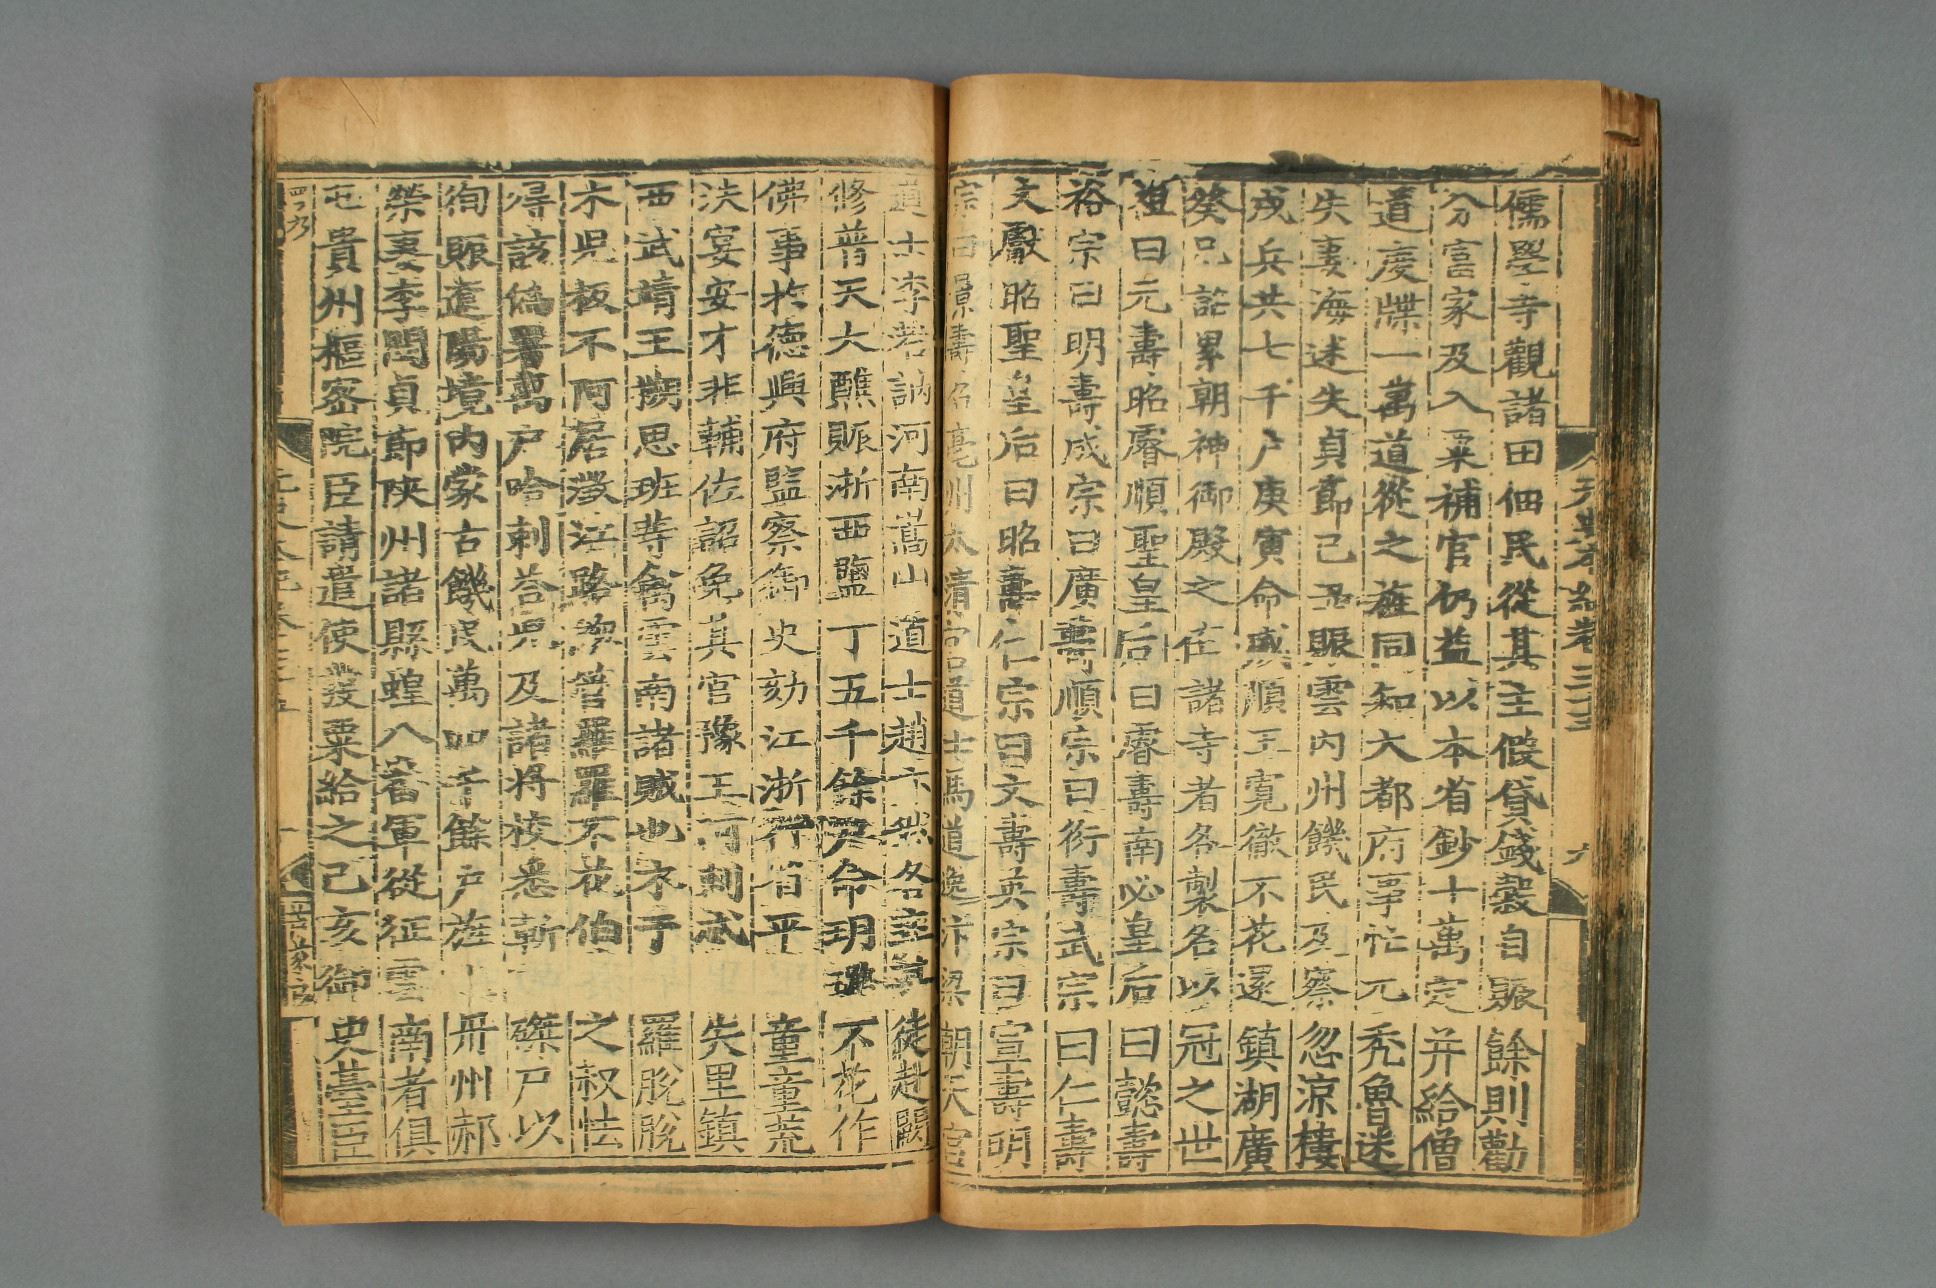 元史本紀卷三十三 六
儒學寺觀諸田佃民從其主假貸錢穀自賑餘則勸
分富家及入粟補官仍益以本省鈔十萬定并給僧
道度牒一萬道從之旌同知大都府事忙兀禿魯迷
失妻海迷失貞節己丑賑雲内州饑民及察忽涼樓
戍兵共七千户庚寅命威順王寬徹不花還鎮湖廣
癸巳詔累朝神御殿之在諸寺者各製名以冠之世
祖曰元壽昭睿順聖皇后曰睿壽南必皇后曰懿壽
裕宗曰明壽成宗曰廣壽順宗曰衍壽武宗曰仁壽
文獻昭聖皇后曰昭壽仁宗曰文壽英宗曰宣壽明
宗曰景壽召亳州太清宮道士馬道逸汴梁朝天宮
道士李若訥河南嵩山道士趙亦然各率其徒赴闕
修普天大醮賑浙西鹽丁五千餘户命玥璐不花作
佛事於德興府監察御史劾江浙行省平章童童荒
泆宴安才非輔佐詔免其官豫王阿剌忒失里鎮
西武靖王搠思班等禽雲南諸賊也木干羅脫脫
木兒板不阿居澂江路總管羅羅不花伯之叔怯
得該僞署萬户哈剌荅兒及諸將校悉斬磔尸以
徇賑遼陽境内蒙古饑民萬四千餘户旌州郝
榮妻李閏貞節陝州諸縣蝗八番軍從征雲南者俱
屯貴州樞密院臣請遣使發粟給之己亥御史臺臣
元史本紀卷三十五 一